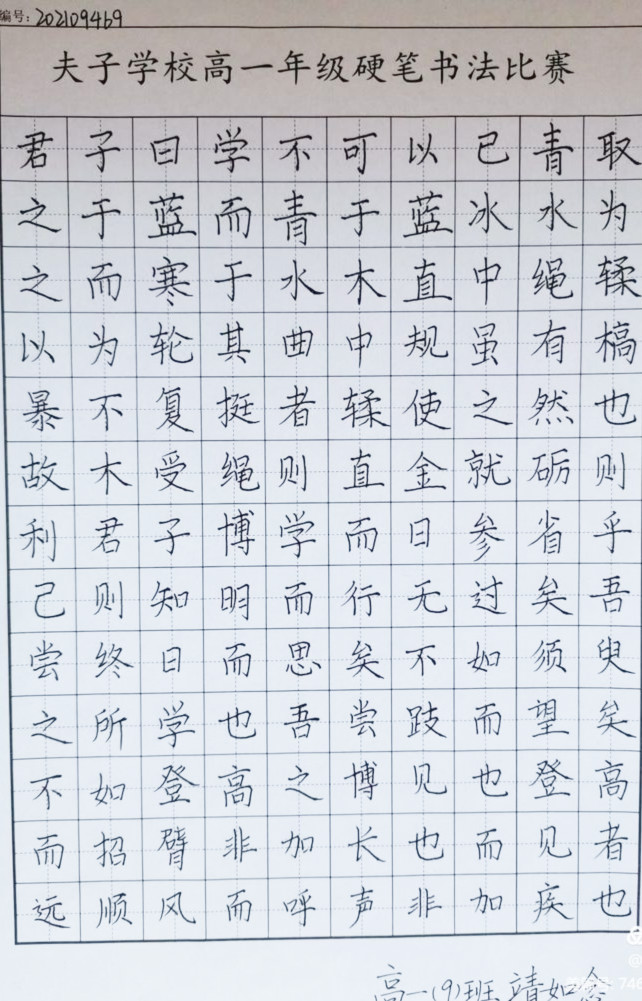 编号：202109469
夫子学校高一年级硬笔书法比赛
君子曰学不可以已青取
之于蓝而青于蓝冰水为
之而寒于水木直中绳輮
以为轮其曲中规虽有槁
暴不复挺者輮使之然也
故木受绳则直金就砺则
利君子博学而日参省乎
己则知明而行无过矣吾
尝终日而思矣不如须臾
之所学也吾尝跂而望矣
不如登高之博见也登高
而招臂非加长也而见者
远顺风而呼声非加疾也
高一(9)班 靖如